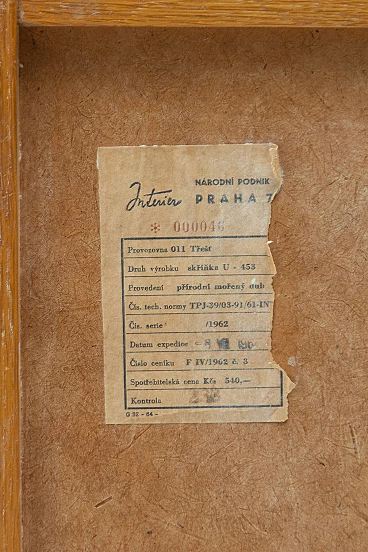 Interier
NÁRODNÍ PODNIK
PRAHA 7
* 000046
Provozovna 011 Třešť
Druh výrobku skříňka U - 453
Provedení přírodní mořený dub
Čís. tech. normy TPJ-39/03-91/61-IN
Čís. serie /1962
Datum expedice
Číslo ceníku F IV/1962 č. 3
Spotřebitelská cena Kčs 540,—
Kontrola
G 32 - 64 -